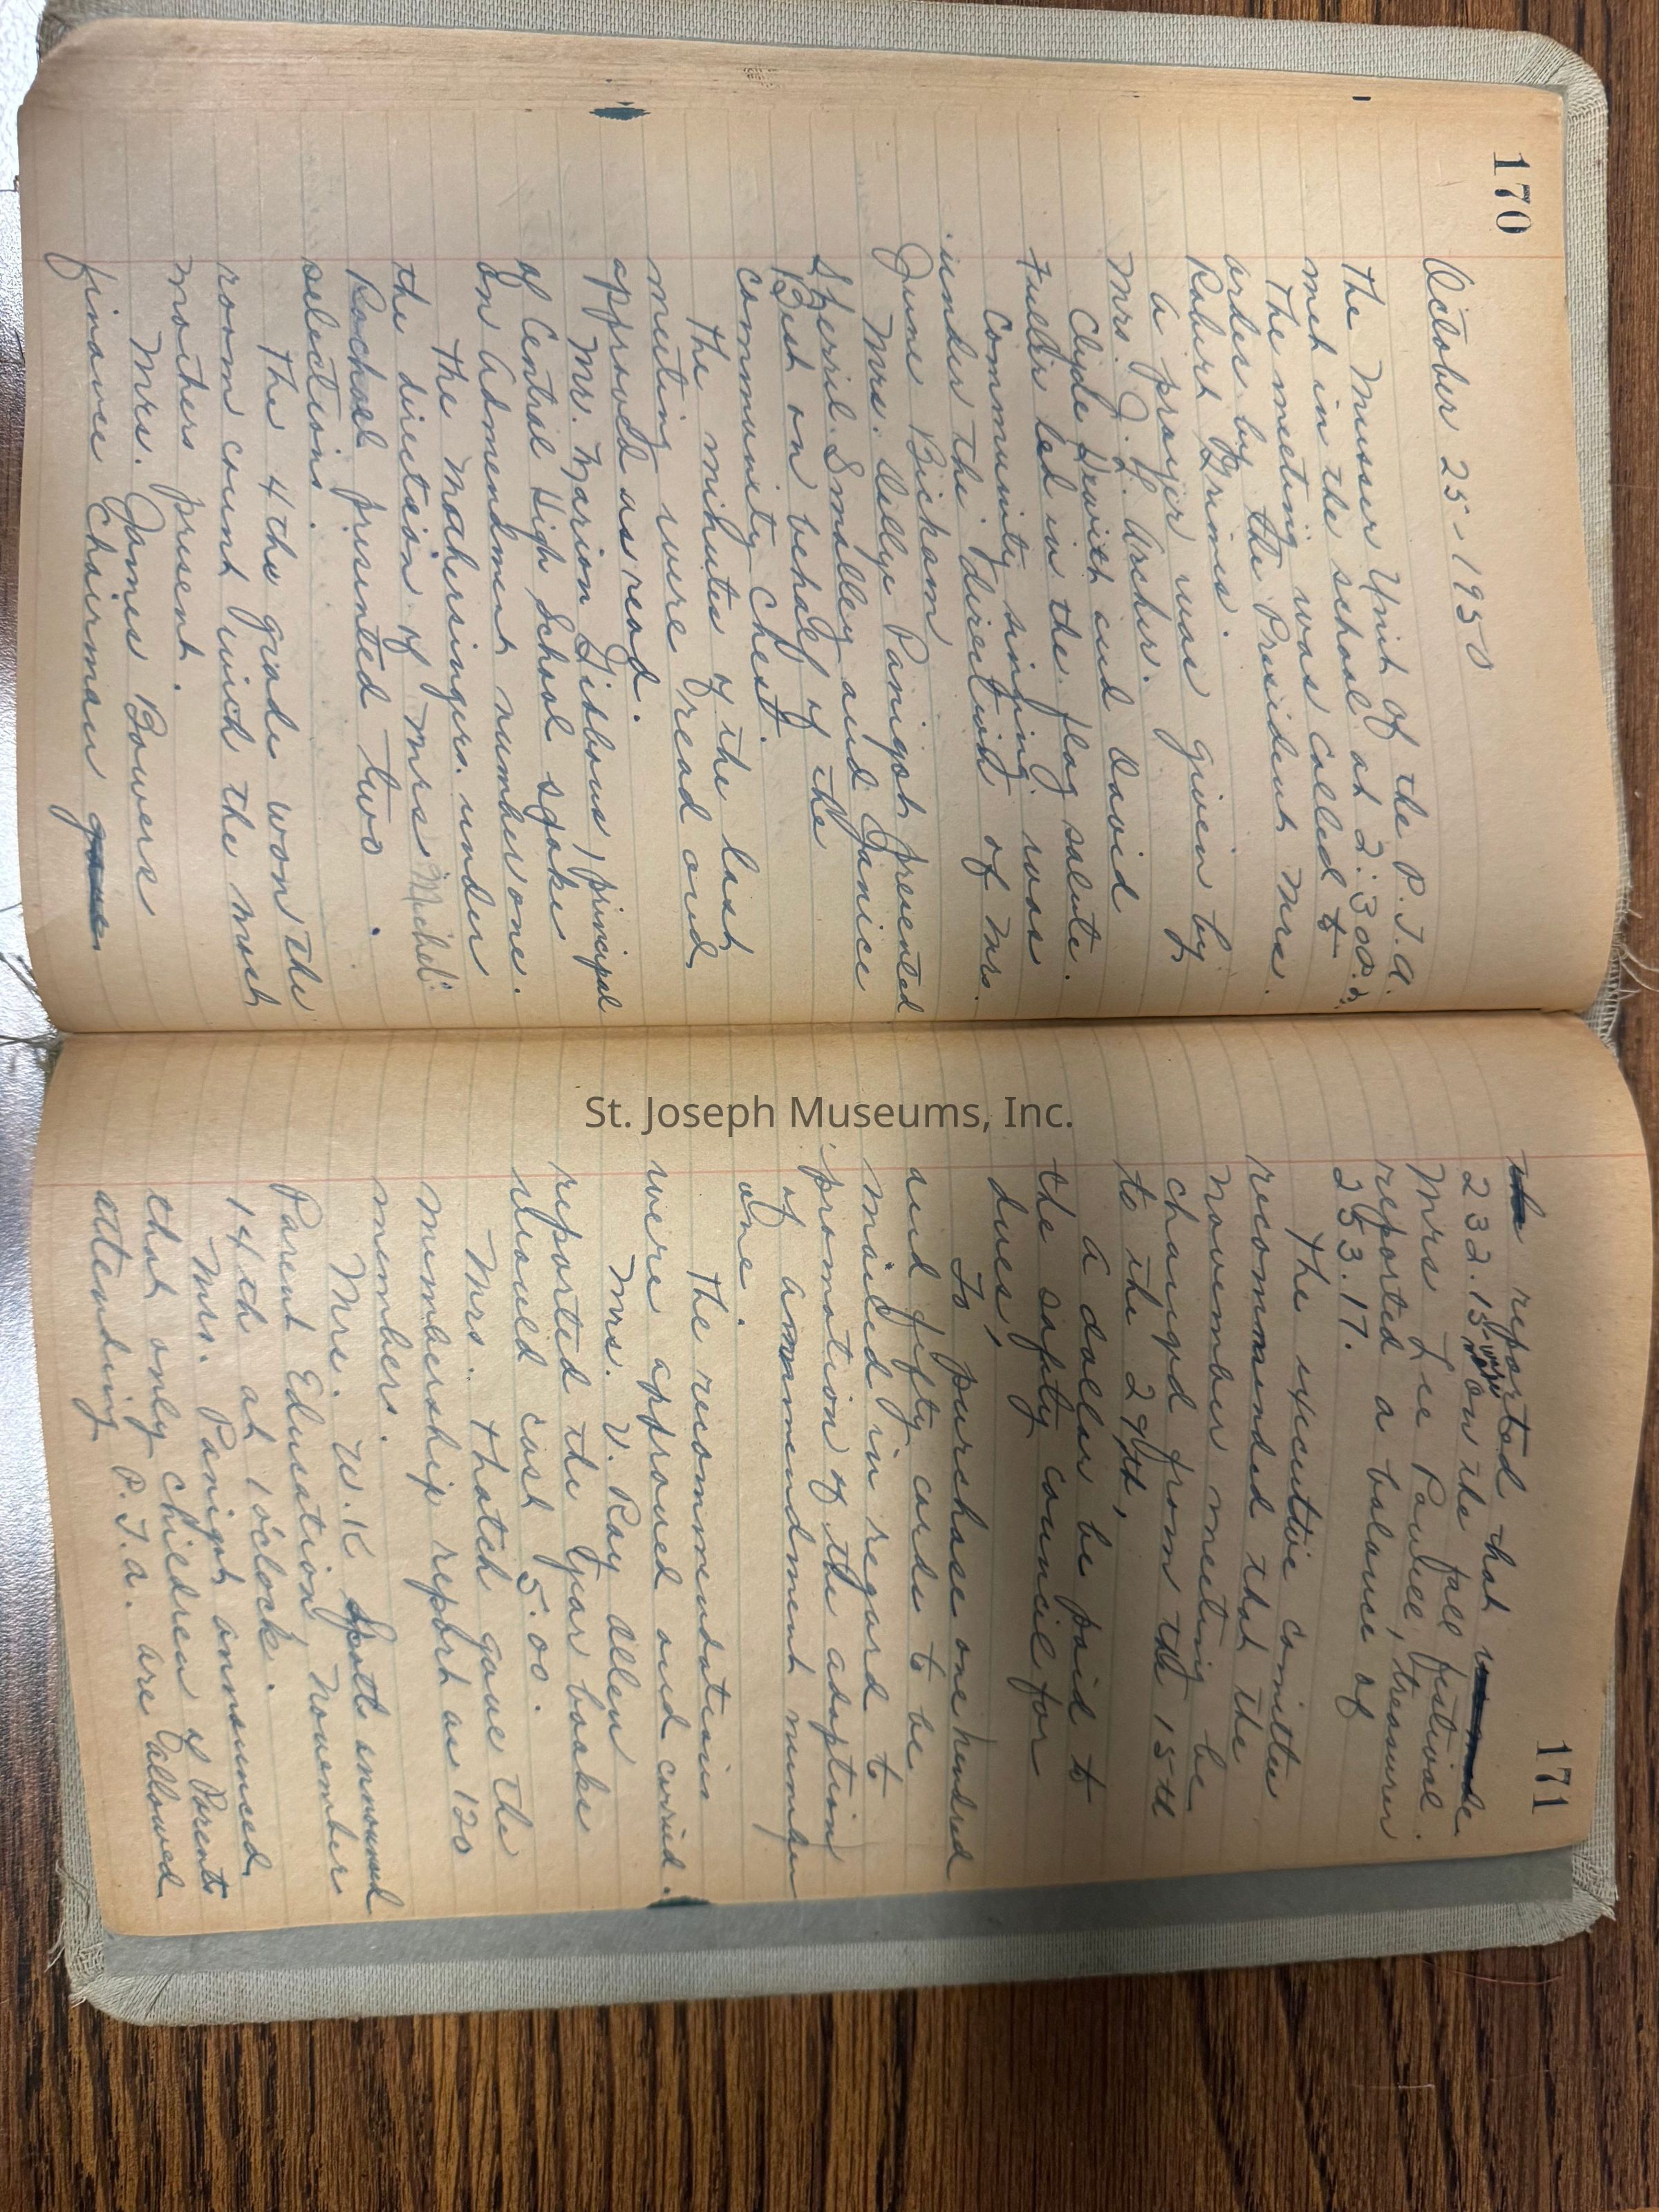 170
October 25-1950
The Musser Unit of the P.T.A.
met in the school at 2:30 o.c.
The meeting was called to
order by the President Mrs.
Robert Grimes.
A prayer was given by
Mrs. J. L. Archer.
Clyde Hewitt and David
Fuller led in the flag salute.
Community singing was
under the direction of Mrs.
June Bickam
Mrs. Nellye Panigot presented
Sherril Smalley and Janice
Best on behalf of the
community Chest.
The minutes of the last
meeting were read and
approved as read.
Mr. Marion Gibbons, principal
of Central High School spoke
on Admendment number one.
The Mothersingers under
the direction of Mrs Michel
Rachal presented two
selections.
The 4 the grade won the
room count with the most
mothers present.
Mrs. James Bowers
finance Chairman gave
171
the reported that was made
232.15 was made on the fall festival.
Mrs Lee Paulee, treasurer
reported a balance of
253.17.
The executive comittee
recommended that the
November meeting be
changed from the 15th
to the 29th,
A dollar be paid to
the safty council for
dues,
To purchase one hundred
and fifty cards to be
mailed in regard to
promation of the adoption
of ammendment number
one.
The recommendations
were approved and carried.
Mrs. V. Ray Allen
reported the Year books
would cost 5.00.
Mrs. Thatch gave the
membership report as 120
members.
Mrs. W.K Spalts announced
Parent Education November
14th at 1 o'clock.
Mrs. Panigot announced
that only children of Parents
attending P.T.A. are allowed
St. Joseph Museums, Inc.